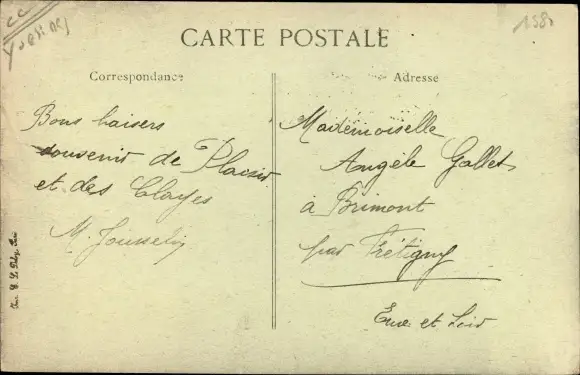 CC
Yvelines
158
CARTE POSTALE
Correspondance
Bons baisers
souvenir de Plaisir
et des Clayes
M. Jousselin
Adresse
Mademoiselle
Angèle Gallet
à Brimont
par Frétigny
Eure et Loir